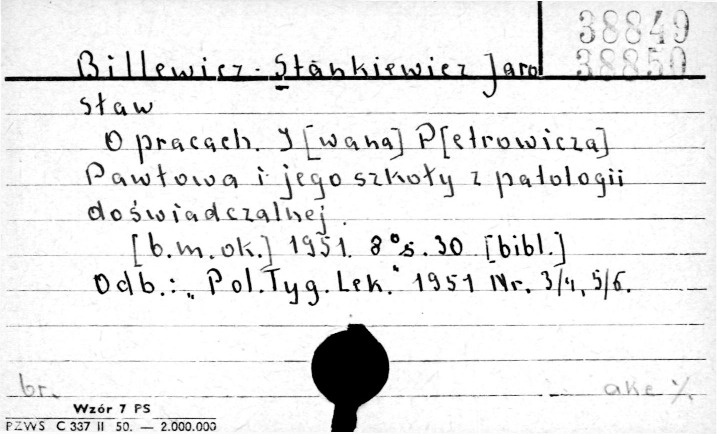 38849
38850
Billewicz-Stankiewicz Jaro
sław
O pracach. I[wana] P[etrowicza]
Pawłowa i jego szkoły z patologii
doświadczalnej.
[b.m.ok.] 1951. 8° s. 30 [bibl.]
Odb.: „Pol.Tyg.Lek." 1951 Nr. 3/4, 5/6.
br.
Wzór 7 PS
PZWS C 337 II 50. — 2.000.000